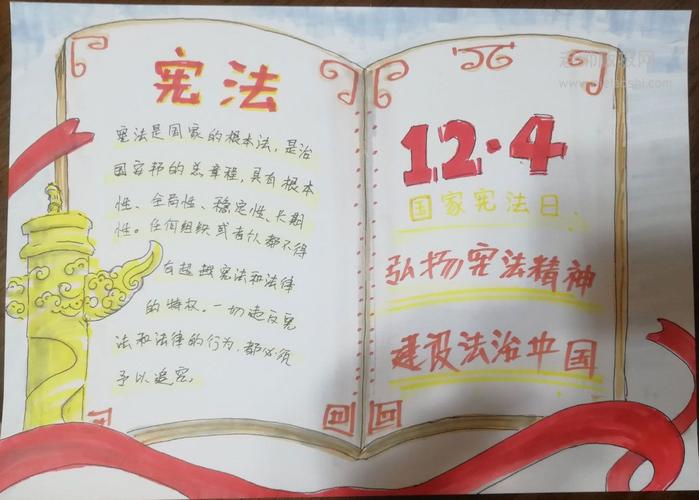 宪法
宪法是国家的根本法，是治
国安邦的总章程，具有根本
性、全局性、稳定性、长期
性。任何组织或者个人都不得
有超越宪法和法律
的特权。一切违反宪
法和法律的行为，都必须
予以追究。
12·4
国家宪法日
弘扬宪法精神
建设法治中国